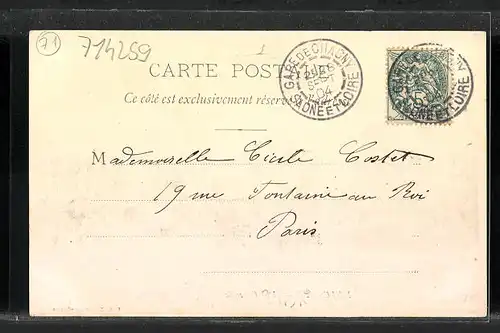 71
714259
CARTE POSTALE
Ce côté est exclusivement réservé
GARE DE CHAGNY
SAÔNE ET LOIRE
04
Mademoiselle Cécile Costet
19 rue Fontaine au Roi
Paris